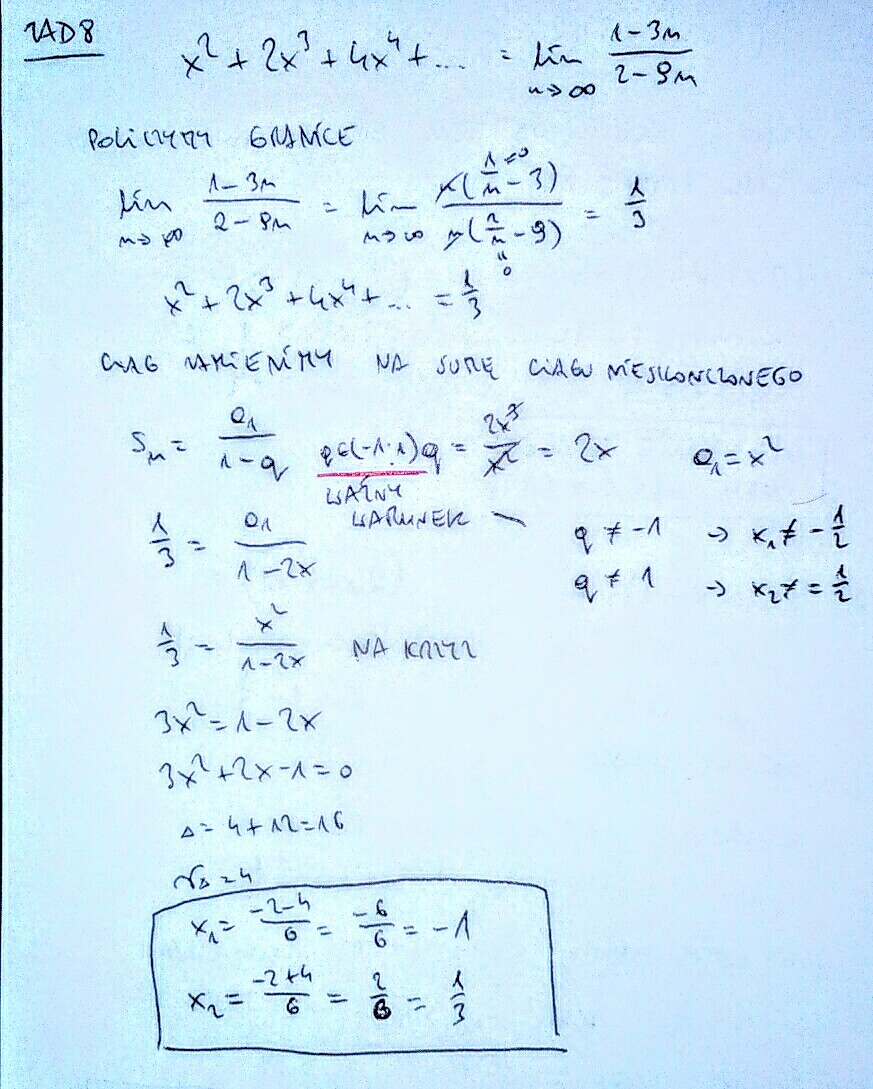 ZAD 8
x² + 2x³ + 4x⁴ + ... = lim n→∞ (1-3n)/(2-9n)
POLICZYMY GRANICE
lim n→∞ (1-3n)/(2-9n) = lim n→∞ n(1/n - 3)/n(2/n - 9) = 1/3
x² + 2x³ + 4x⁴ + ... = 1/3
CIĄG ZAMIENIMY NA SUMĘ CIAGU NIESKONCZONEGO
Sn = a₁/(1-q) q∈(-1;1) q = 2x³/x² = 2x a₁ = x²
WAŻNY
WARUNEK
1/3 = a₁/(1-2x) q ≠ -1 → x₁ ≠ -1/2
q ≠ 1 → x₂ ≠ = 1/2
1/3 = x²/(1-2x) NA KRZYZ
3x² = 1-2x
3x² + 2x - 1 = 0
Δ = 4 + 12 = 16
√Δ = 4
x₁ = (-2-4)/6 = -6/6 = -1
x₂ = (-2+4)/6 = 2/6 = 1/3